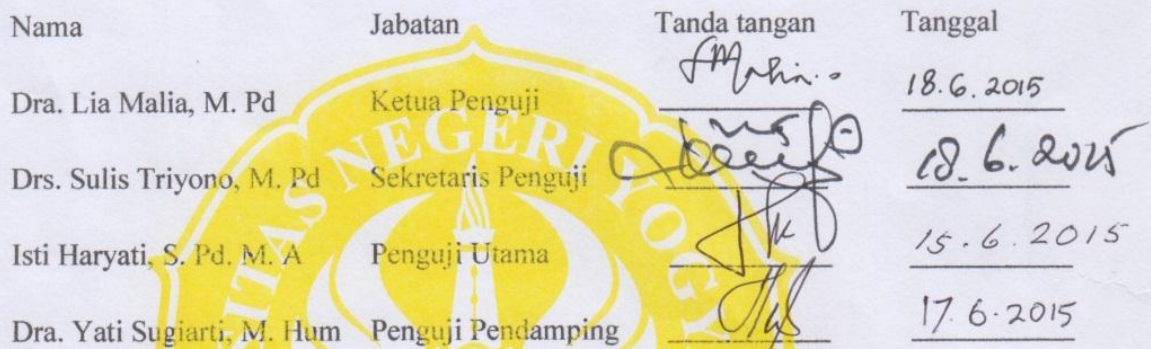 Nama Jabatan Tanda tangan Tanggal
Dra. Lia Malia, M. Pd Ketua Penguji 18.6.2015
Drs. Sulis Triyono, M. Pd Sekretaris Penguji 18.6.2015
Isti Haryati, S. Pd. M. A Penguji Utama 15.6.2015
Dra. Yati Sugiarti, M. Hum Penguji Pendamping 17.6.2015
ITAS NEGERI YOGY